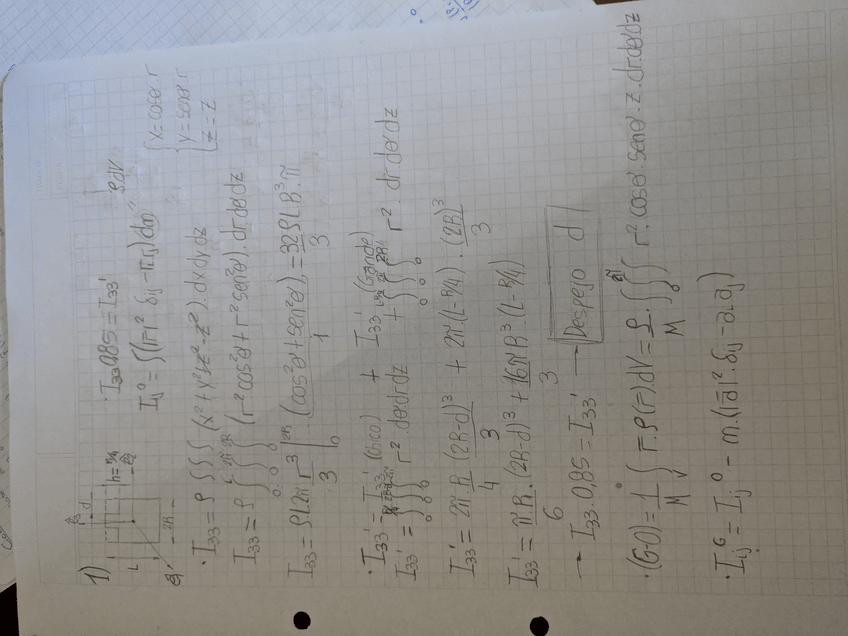 1)
L
d
h=R/4
2R
· I₃₃ 0.85 = I₃₃'
Iᵢⱼ⁰ = ∫(|r̄|² · δᵢⱼ - rᵢ rⱼ) dm
ρdV
{x = cosθ · r
y = senθ · r
z = z
· I₃₃ = ρ ∫∫∫ (x² + y² + z² - z²) · dx dy dz
I₃₃ = ρ ∫∫∫ (r² cos²θ + r² sen²θ) · dr dθ dz
I₃₃ = ρL2π r³/3 |₀²ᴿ · (cos²θ + sen²θ) = 32ρLR³·π/3
1
· I₃₃' = I₃₃' (Chico) + I₃₃' (Grande)
I₃₃' = ∫∫∫ r² · dθ dr dz + ∫∫∫ r² · dr dθ dz
I₃₃' = 2π · R/4 · (2R-d)³/3 + 2π · (L-R/4) · (2R)³/3
I₃₃' = πR/6 · (2R-d)³ + 16πR³/3 · (L-R/4)
→ I₃₃ · 0,85 = I₃₃' → Despejo d
· (G-O) = 1/M ∫ᵥ r · ρ(r) dV = ρ/M · ∫∫∫ r² · cosθ · senθ · z · dr dθ dz
· Iᵢⱼᴳ = Iᵢⱼ⁰ - m · (|ā|² · δᵢⱼ - aᵢ aⱼ)